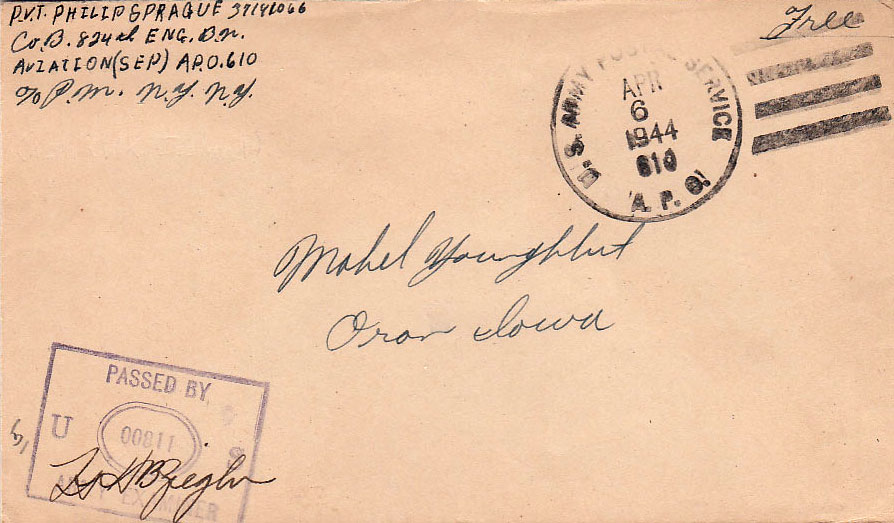 PVT. PHILIP SPRAGUE
Co.B. 824th ENG. Bn.
AVIATION (SEP) APO. 610
c/o P.M. N.Y. N.Y.
Free
U.S. ARMY POSTAL SERVICE
APR
6
1944
610
A. P. O.
Mabel Youngblut
Oran Iowa
PASSED BY
U S
00811
ARMY EXAMINER